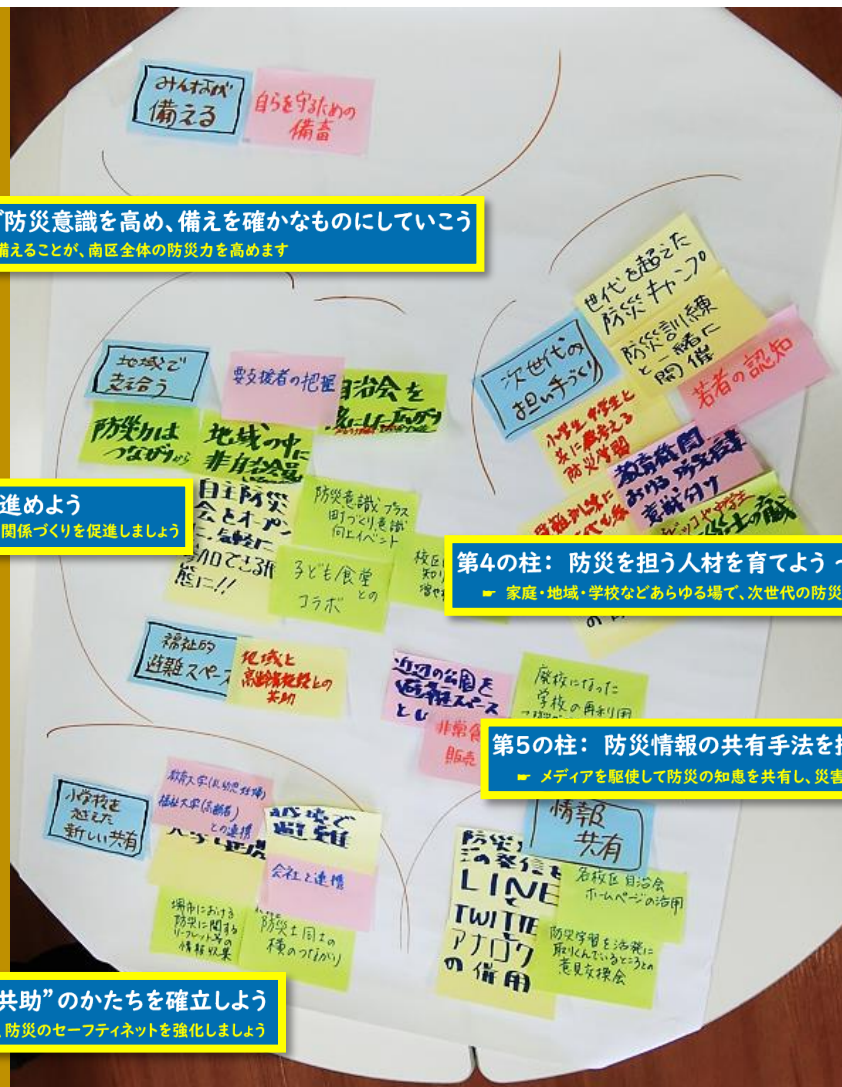 みんなが
備える
自らを守るための
備畜
防災意識を高め、備えを確かなものにしていこう
備えることが、南区全体の防災力を高めます
地域で
支え合う
要支援者の把握
自治会を
防災力は
つながりから
地域の中に
非自治会員
自主防災
会をオープン
気軽に
できる形
態に!!
防災意識プラス
町づくり意識
向上イベント
子ども食堂
との
コラボ
校区
知り
進めよう
関係づくりを促進しましょう
世代を超えた
防災キャンプ
防災訓練
と一緒に
開催
次世代の
担い手づくり
若者の認知
小学生 中学生と
共に
考える
防災学習
教育機関
おける
第4の柱： 防災を担う人材を育てよう ～
☛ 家庭・地域・学校などあらゆる場で、次世代の防災
福祉的
避難スペース
地域と
高齢者施設との
共助
近辺の公園を
避難スペース
とし
非常食
販売
廃校になった
学校の再利用
第5の柱： 防災情報の共有手法を
☛ メディアを駆使して防災の知恵を共有し、災害
小学校を
越えた
新しい共有
教育大学(乳幼児 妊婦)
福祉大学(高齢者)
との連携
避難
会社と連携
堺市における
防災に関する
リーフレット等の
情報収集
防災士同士の
横のつながり
情報
共有
防災
の発信を
LINE
と
TWITTE
アナログ
の併用
各校区自治会
ホームページの活用
防災学習を活発に
取りくんでいるところとの
意見交換会
共助”のかたちを確立しよう
防災のセーフティネットを強化しましょう